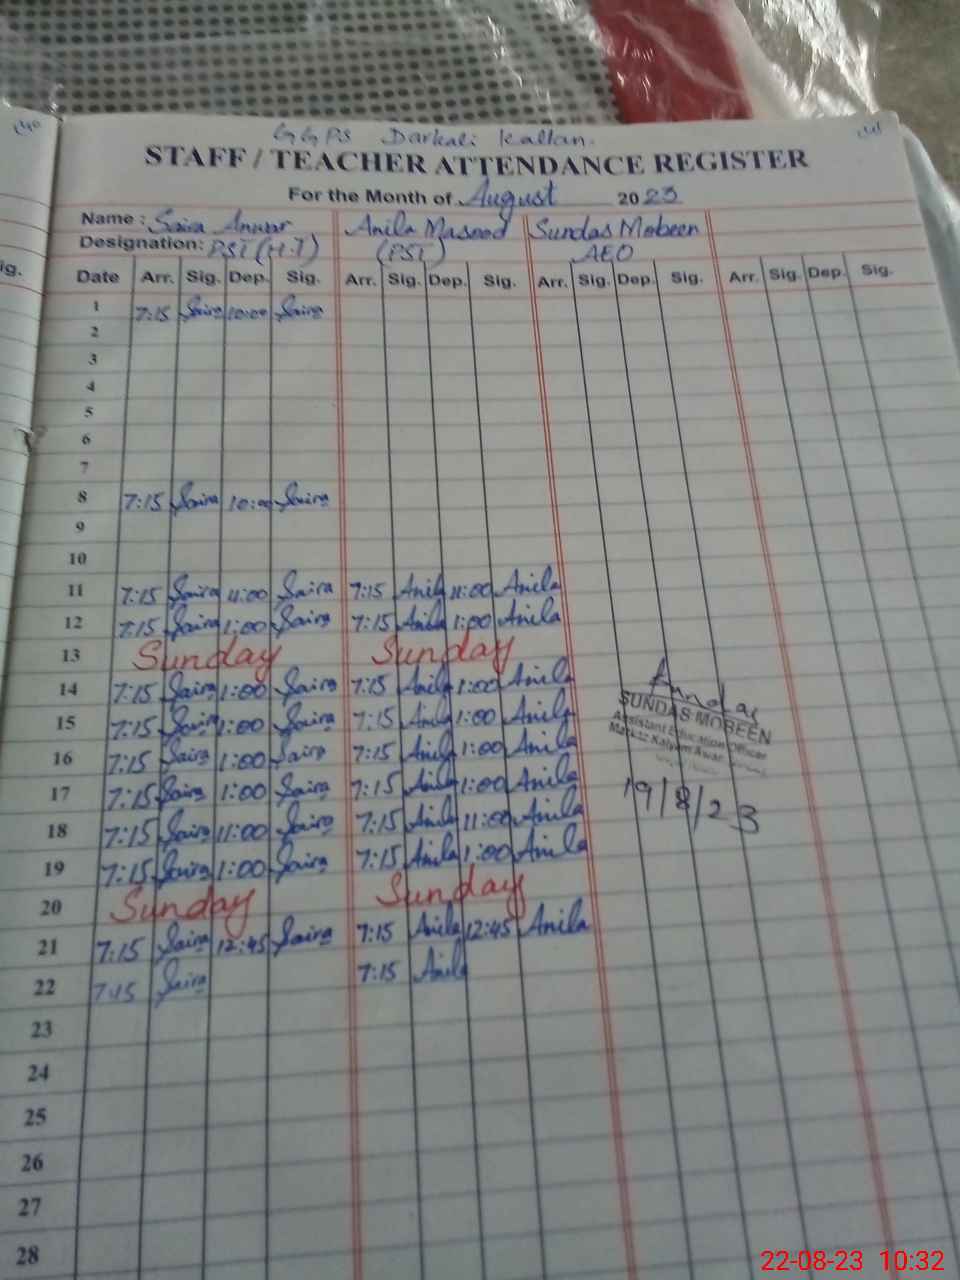 GGPS Darkali Kallan.
STAFF / TEACHER ATTENDANCE REGISTER
For the Month of August 2023
Name : Saira Anwar Anila Masood Sundas Mobeen
Designation: PST (H.T) (PST) AEO
Date Arr. Sig. Dep. Sig. Arr. Sig. Dep. Sig. Arr. Sig. Dep. Sig. Arr. Sig. Dep. Sig.
1 7:15 Saira 10:00 Saira
2
3
4
5
6
7
8 7:15 Saira 10:00 Saira
9
10
11 7:15 Saira 11:00 Saira 7:15 Anila 11:00 Anila
12 7:15 Saira 1:00 Saira 7:15 Anila 1:00 Anila
13 Sunday Sunday
14 7:15 Saira 1:00 Saira 7:15 Anila 1:00 Anila
15 7:15 Saira 1:00 Saira 7:15 Anila 1:00 Anila
SUNDAS MOBEEN
Assistant Education Officer
16 7:15 Saira 1:00 Saira 7:15 Anila 1:00 Anila
17 7:15 Saira 1:00 Saira 7:15 Anila 1:00 Anila
19/8/23
18 7:15 Saira 11:00 Saira 7:15 Anila 11:00 Anila
19 7:15 Saira 1:00 Saira 7:15 Anila 1:00 Anila
20 Sunday Sunday
21 7:15 Saira 12:45 Saira 7:15 Anila 12:45 Anila
22 7:15 Saira 7:15 Anila
23
24
25
26
27
28
22-08-23 10:32